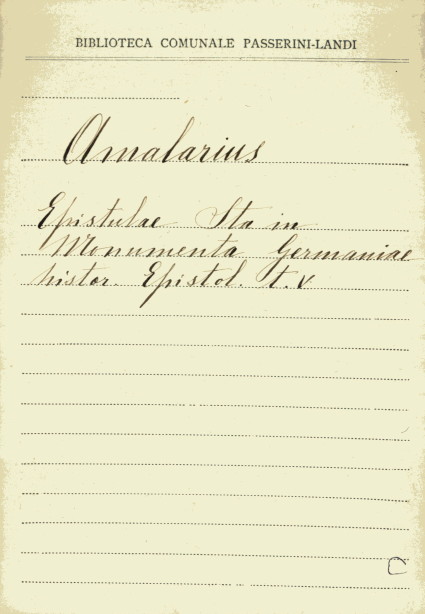 BIBLIOTECA COMUNALE PASSERINI-LANDI
Amalarius
Epistulae Sta in
Monumenta Germaniae
histor. Epistol. t. V